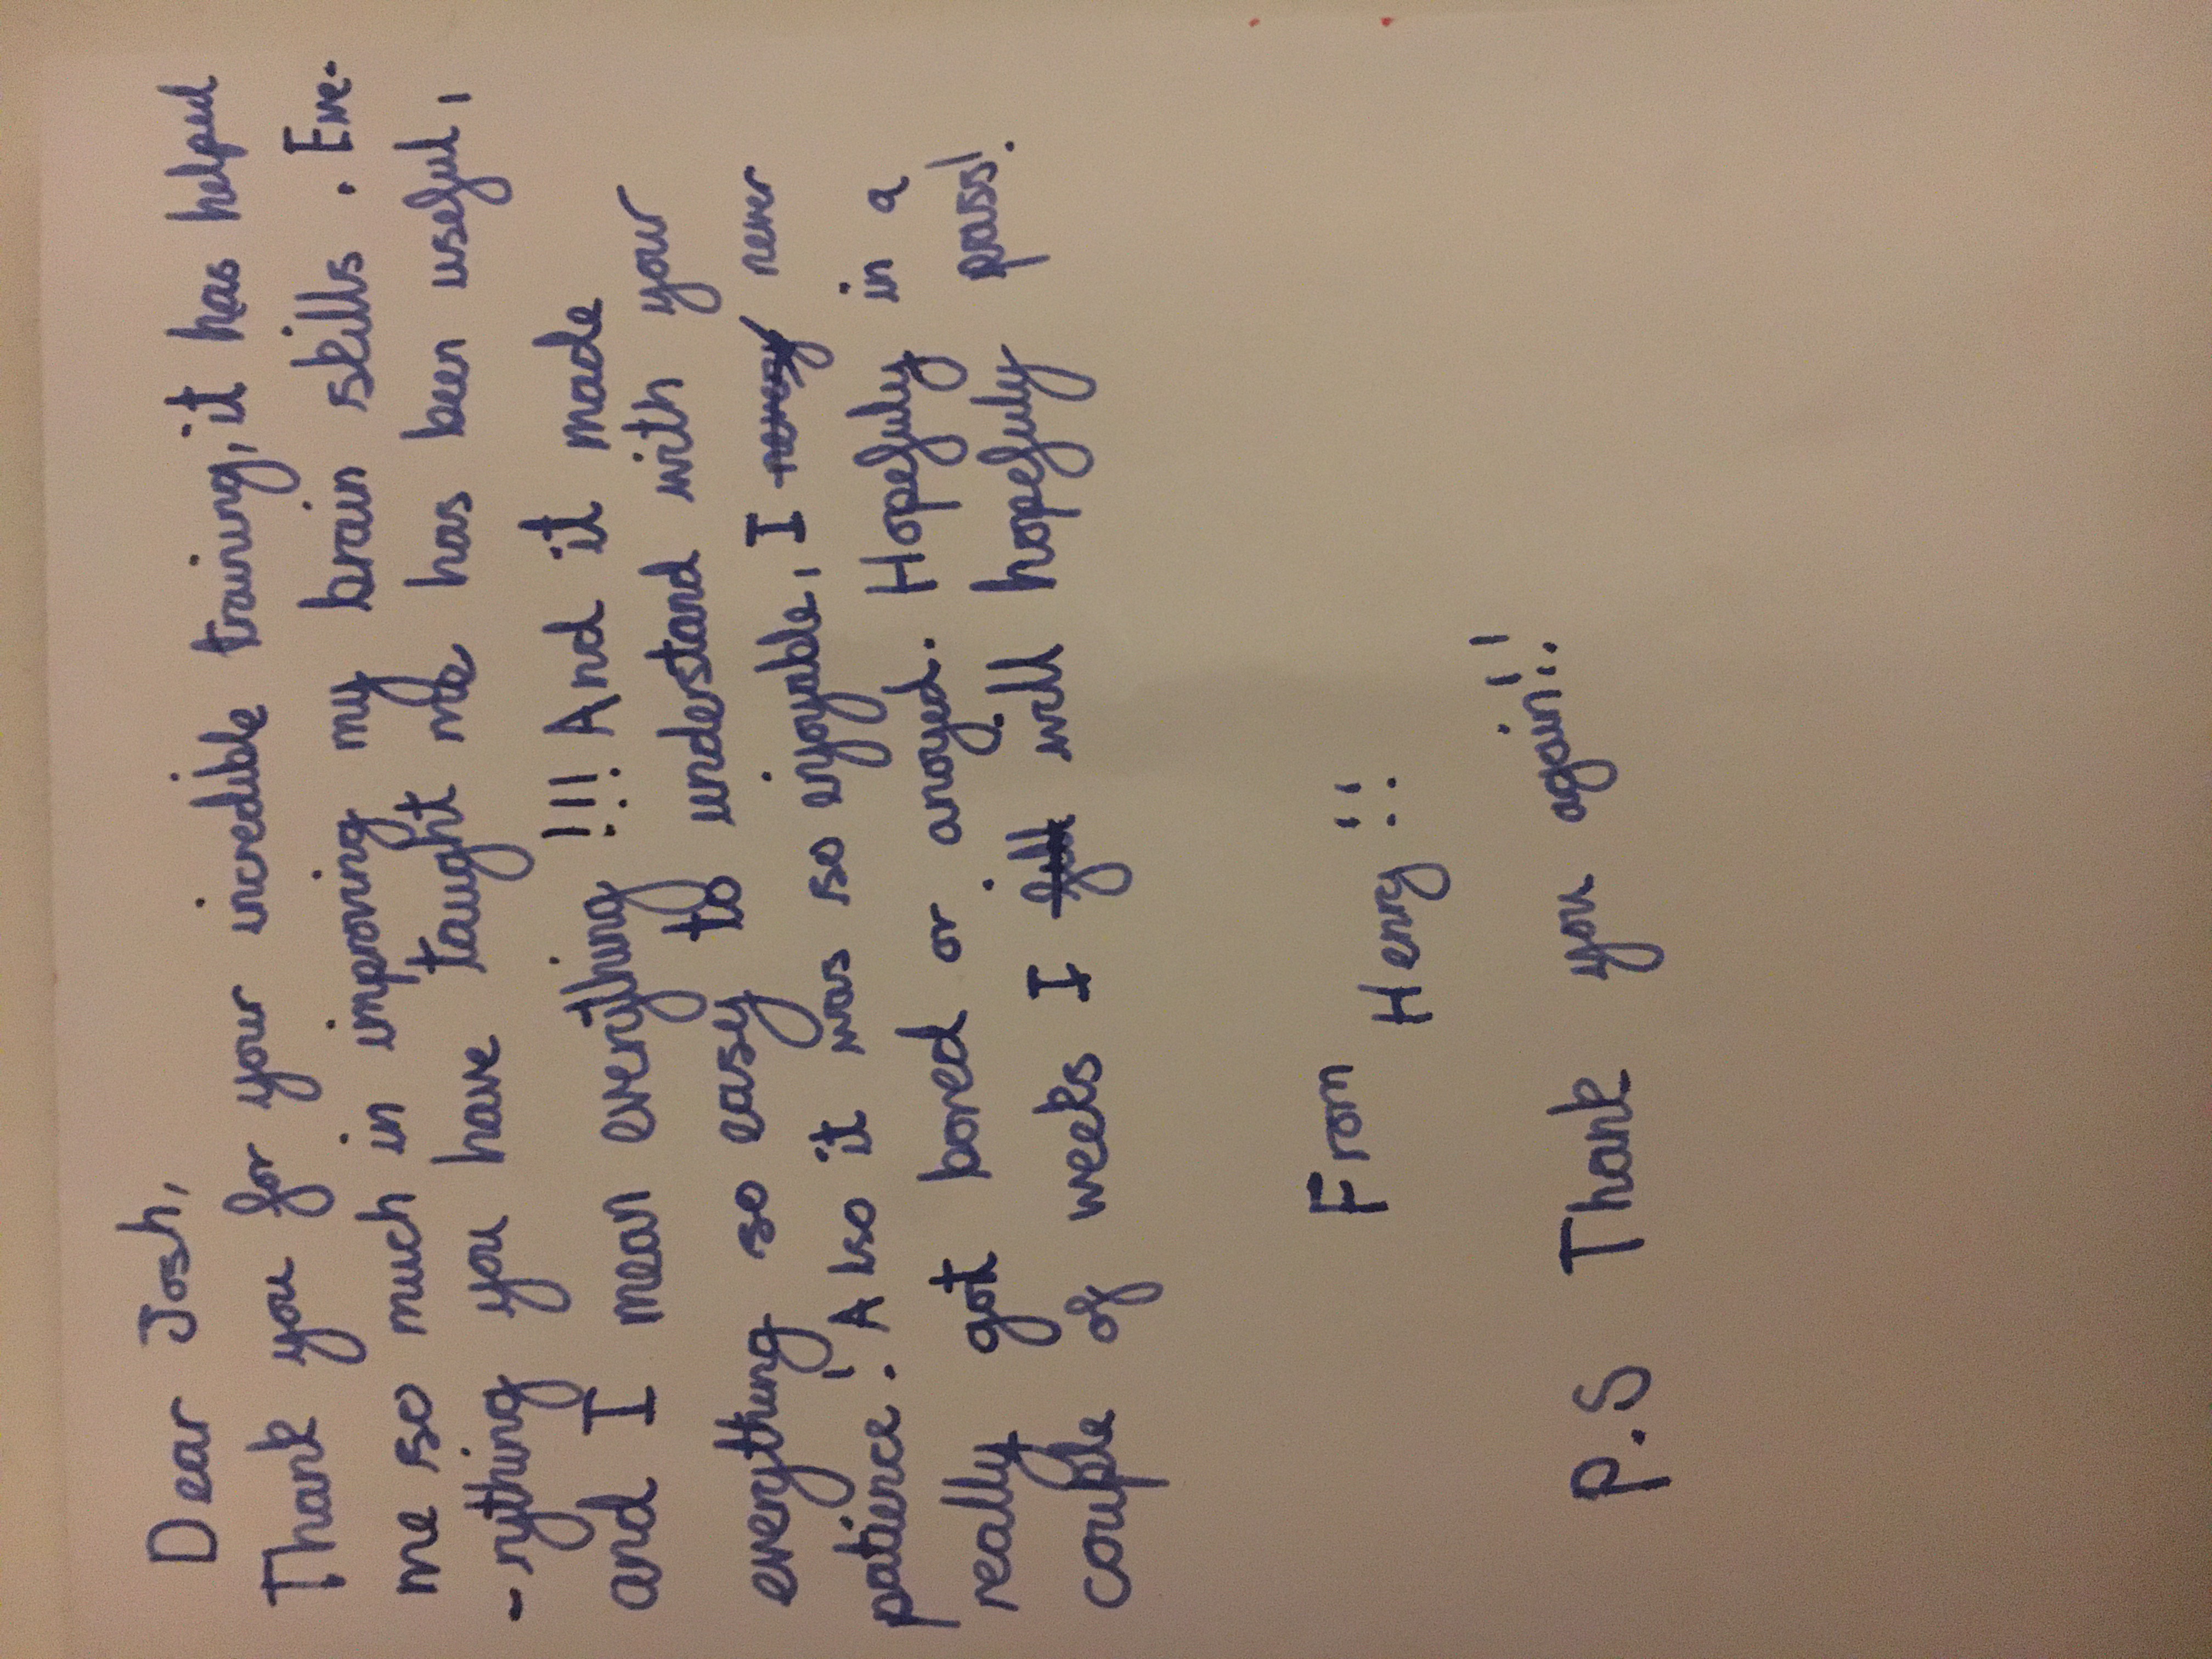 Dear Josh,
Thank you for your incredible training, it has helped
me so much in improving my brain skills. Eve-
-rything you have taught me has been useful,
and I mean everything!!! And it made
everything so easy to understand with your
patience! Also it was so enjoyable, I never
really got bored or anoyed. Hopefuly in a
couple of weeks I will hopefuly pass!
From
Henry!!
P.S Thank you again!!